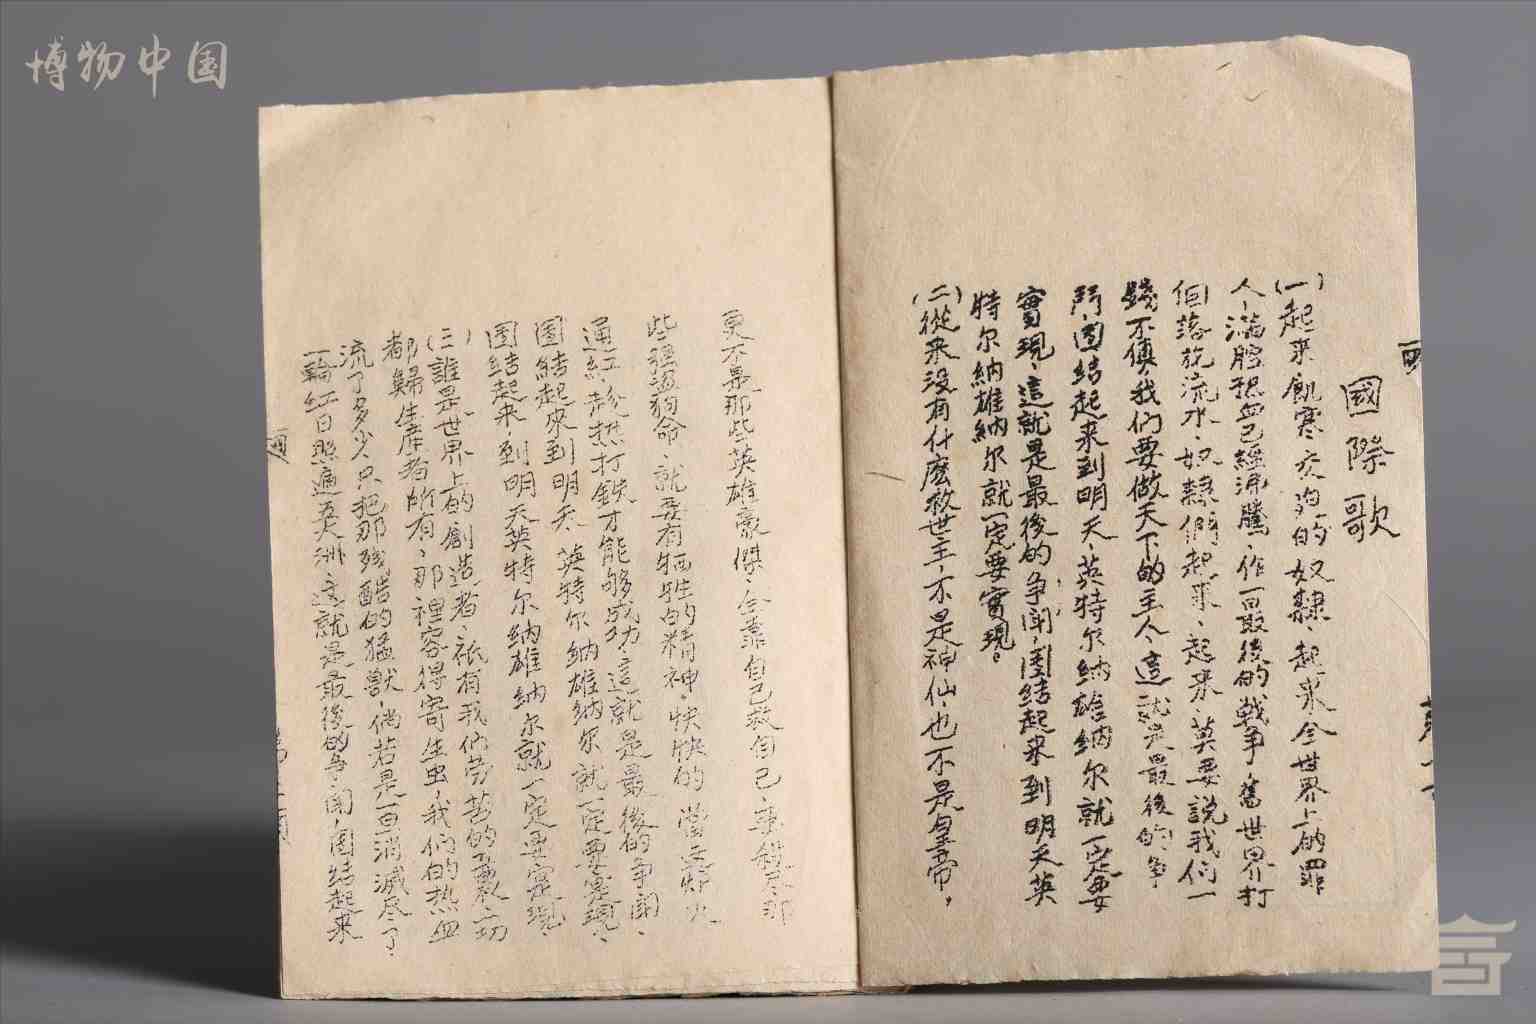 博物中国
國際歌
(一)起来飢寒交廹的奴隸、起来全世界上的罪
人、滿腔热血已經沸騰、作一最後的戰争、舊世界打
個落花流水、奴隸們起来、起来、莫要說我们一
錢不值我们要做天下的主人、這就是最後的争
鬥、團结起来到明天、英特尔納雄納尔就一定要
實現、這就是最後的争鬧、團结起来到明天英
特尔納雄納尔就一定要實現。
(二)從来没有什麽救世主、不是神仙、也不是皇帝、
更不是那些英雄豪傑、全靠自己救自己、要殺尽那
些强盗狗命、就要有牺牲的精神、快快的當這炉火
通紅、趁热打鉄才能够成功、這就是最後的争鬧、
團結起來到明天、英特尔納雄納尔就一定要實現、
團结起来、到明天英特尔納雄納尔就一定要實現、
(三)誰是世界上的創造者、祇有我们劳苦的工農一切
都歸生産者所有、那裡容得寄生虫、我们的热血
流了多少、只把那残酷的猛獸、倘若是一旦消滅尽了
一輪红日照遍五大洲、這就是最後的争鬧、團结起来